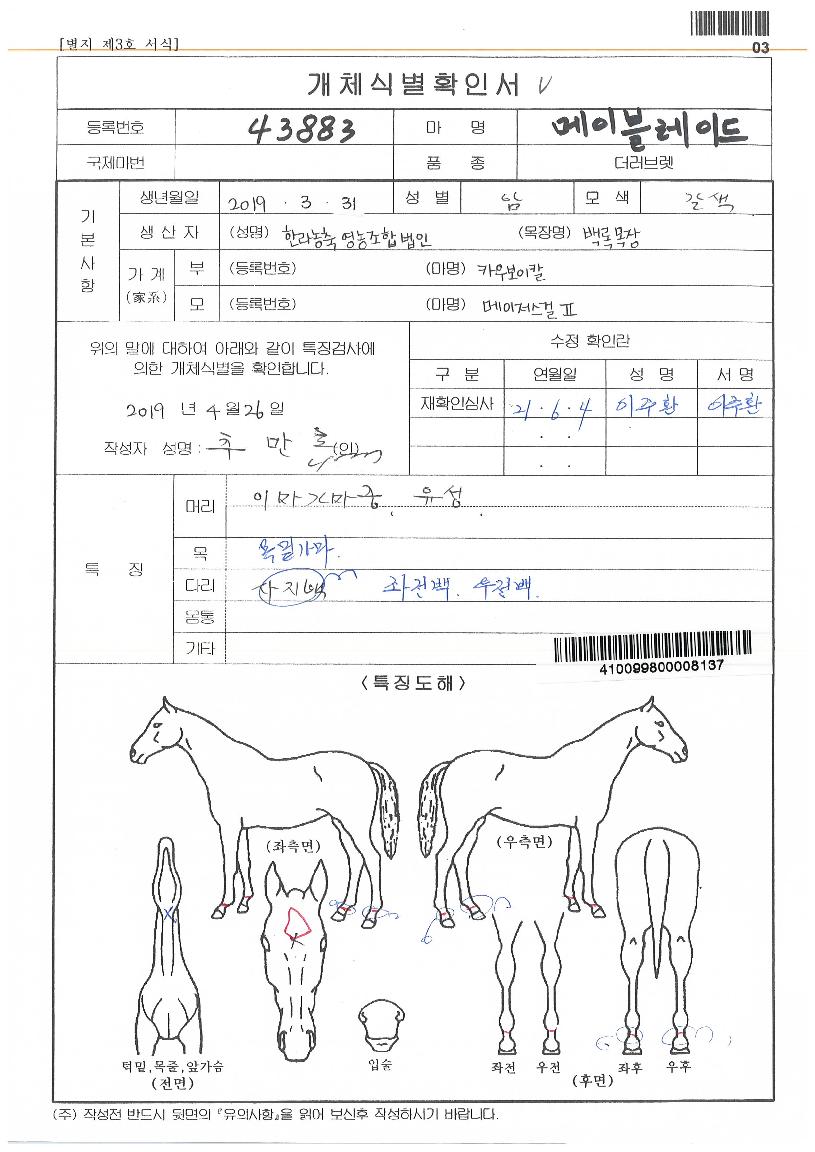 [별지 제3호 서식]
03
개체식별확인서 V
등록번호 43883 마 명 메이블레이드
국제마번 품 종 더러브렛
기본사항
생년월일 2019 . 3 . 31 성 별 암 모 색 갈색
생 산 자 (성명) 한라농축영농조합법인 (목장명) 백록목장
가 계 (家系)
부 (등록번호) (마명) 카우보이칼
모 (등록번호) (마명) 메이저스걸 II
위의 말에 대하여 아래와 같이 특징검사에
의한 개체식별을 확인합니다.
2019 년 4 월 26 일
작성자 성명 : 추 만 호 (인)
수정 확인란
구 분 연월일 성 명 서 명
재확인심사 21 . 6 . 4 이주환 이주환
. .
. .
특 징
머리 이마가마중, 유성.
목 목밑가마.
다리 사지백 좌전백. 우전백.
몸통
기타
410099800008137
<특징도해>
(좌측면) (우측면)
턱밑,목줄,앞가슴
(전면)
입술
좌전 우전 좌후 우후
(후면)
(주) 작성전 반드시 뒷면의 『유의사항』을 읽어 보신후 작성하시기 바랍니다.